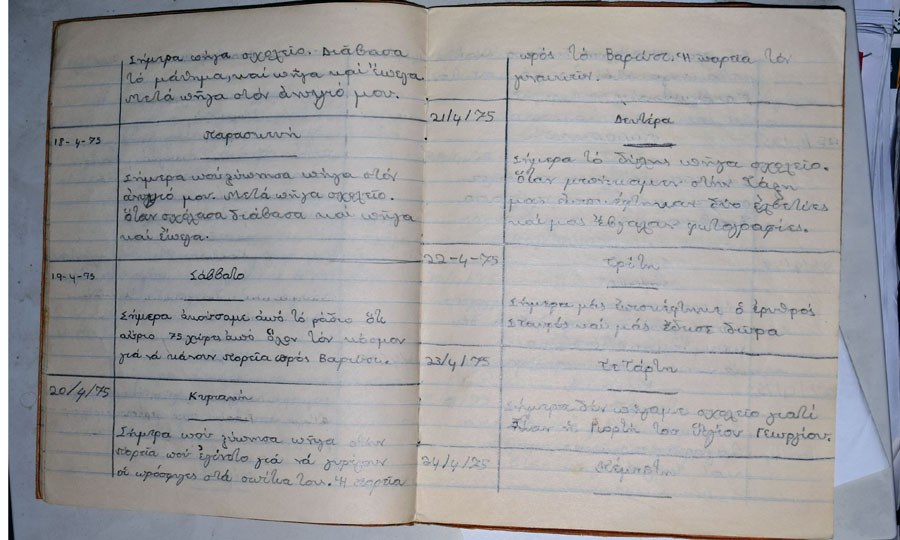 Σήμερα πήγα σχολείο. Διάβασα
τό μάθημα, καί πήγα καί έπεξα
Μετά πήγα στόν άνηψιό μου.
18-4-75
Παρασκευή
Σήμερα πού ξύπνησα πήγα στόν
άνηψιό μου. Μετά πήγα σχολείο.
Όταν σχόλασα διάβασα καί πήγα
καί έπεξα.
19-4-75
Σάββατο
Σήμερα άκούσαμε άπό τό ράδιο ότι
αύριο 75 χώρες άπό όλον τόν κόσμον
γιά νά κάνουν πορεία πρός Βαρώσι.
20/4/75
Κυριακή
Σήμερα πού ξύπνησα πήγα στήν
πορεία πού έγίνετο γιά νά γυρίσουν
οί πρόσφυγες στά σπίτια τους. Ή πορεία
πρός τό Βαρώσι. Ή πορεία τόν
γυναικών.
21/4/75
Δευτέρα
Σήμερα τό δίλης πήγα σχολείο.
Όταν μπήκαμεν στήν τάξη
μας έπισκέφτηκαν δύο έλβετίες
καί μας έβγαλαν φωτογραφίες.
22-4-75
Τρίτη
Σήμερα μάς έπισκέφτηκε ό έρυθρός
Σταυρός καί μάς έδωσε δώρα
23/4/75
Τετάρτη
Σήμερα δέν πήγαμε σχολείο γιατί
ήταν ή γιορτή του Άγίου Γεωργίου.
24/4/75
Πέμπτη